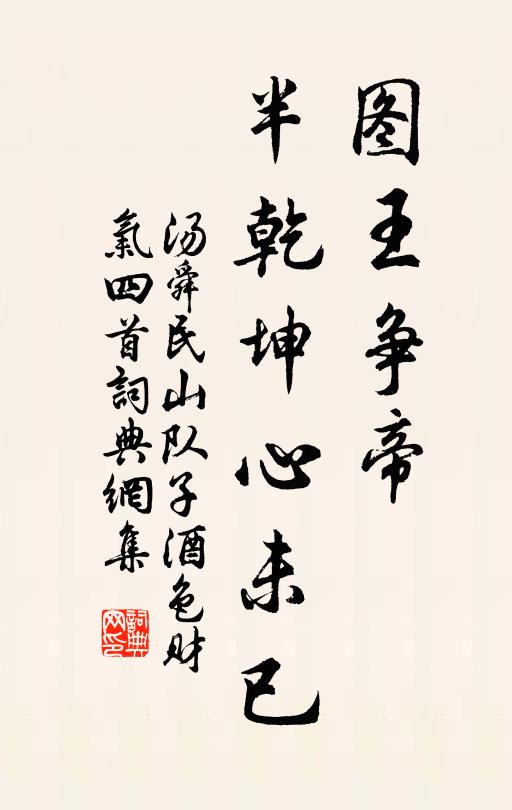 图王争帝
半乾坤心未已
汤舜民山队子酒色财
氣四首詞典網集
詞典
网印